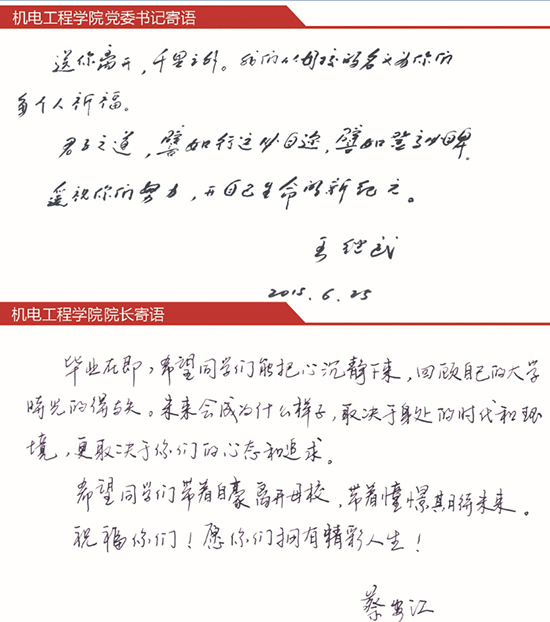 机电工程学院党委书记寄语
送你离开,千里之外。我们以母校的名义为你们
每个人祈福。
君子之道,譬如行远必自迩,譬如登高必自卑。
遥祝你们努力,开自己生命的新纪元。
王继武
2015.6.25
机电工程学院院长寄语
毕业在即,希望同学们能把心沉静下来,回顾自己的大学
时光的得与失。未来会成为什么样子,取决于身处的时代和环
境,更取决于你们的心态和追求。
希望同学们带着自豪离开母校,带着憧憬赢得未来。
祝福你们!愿你们拥有精彩人生!
蔡安江